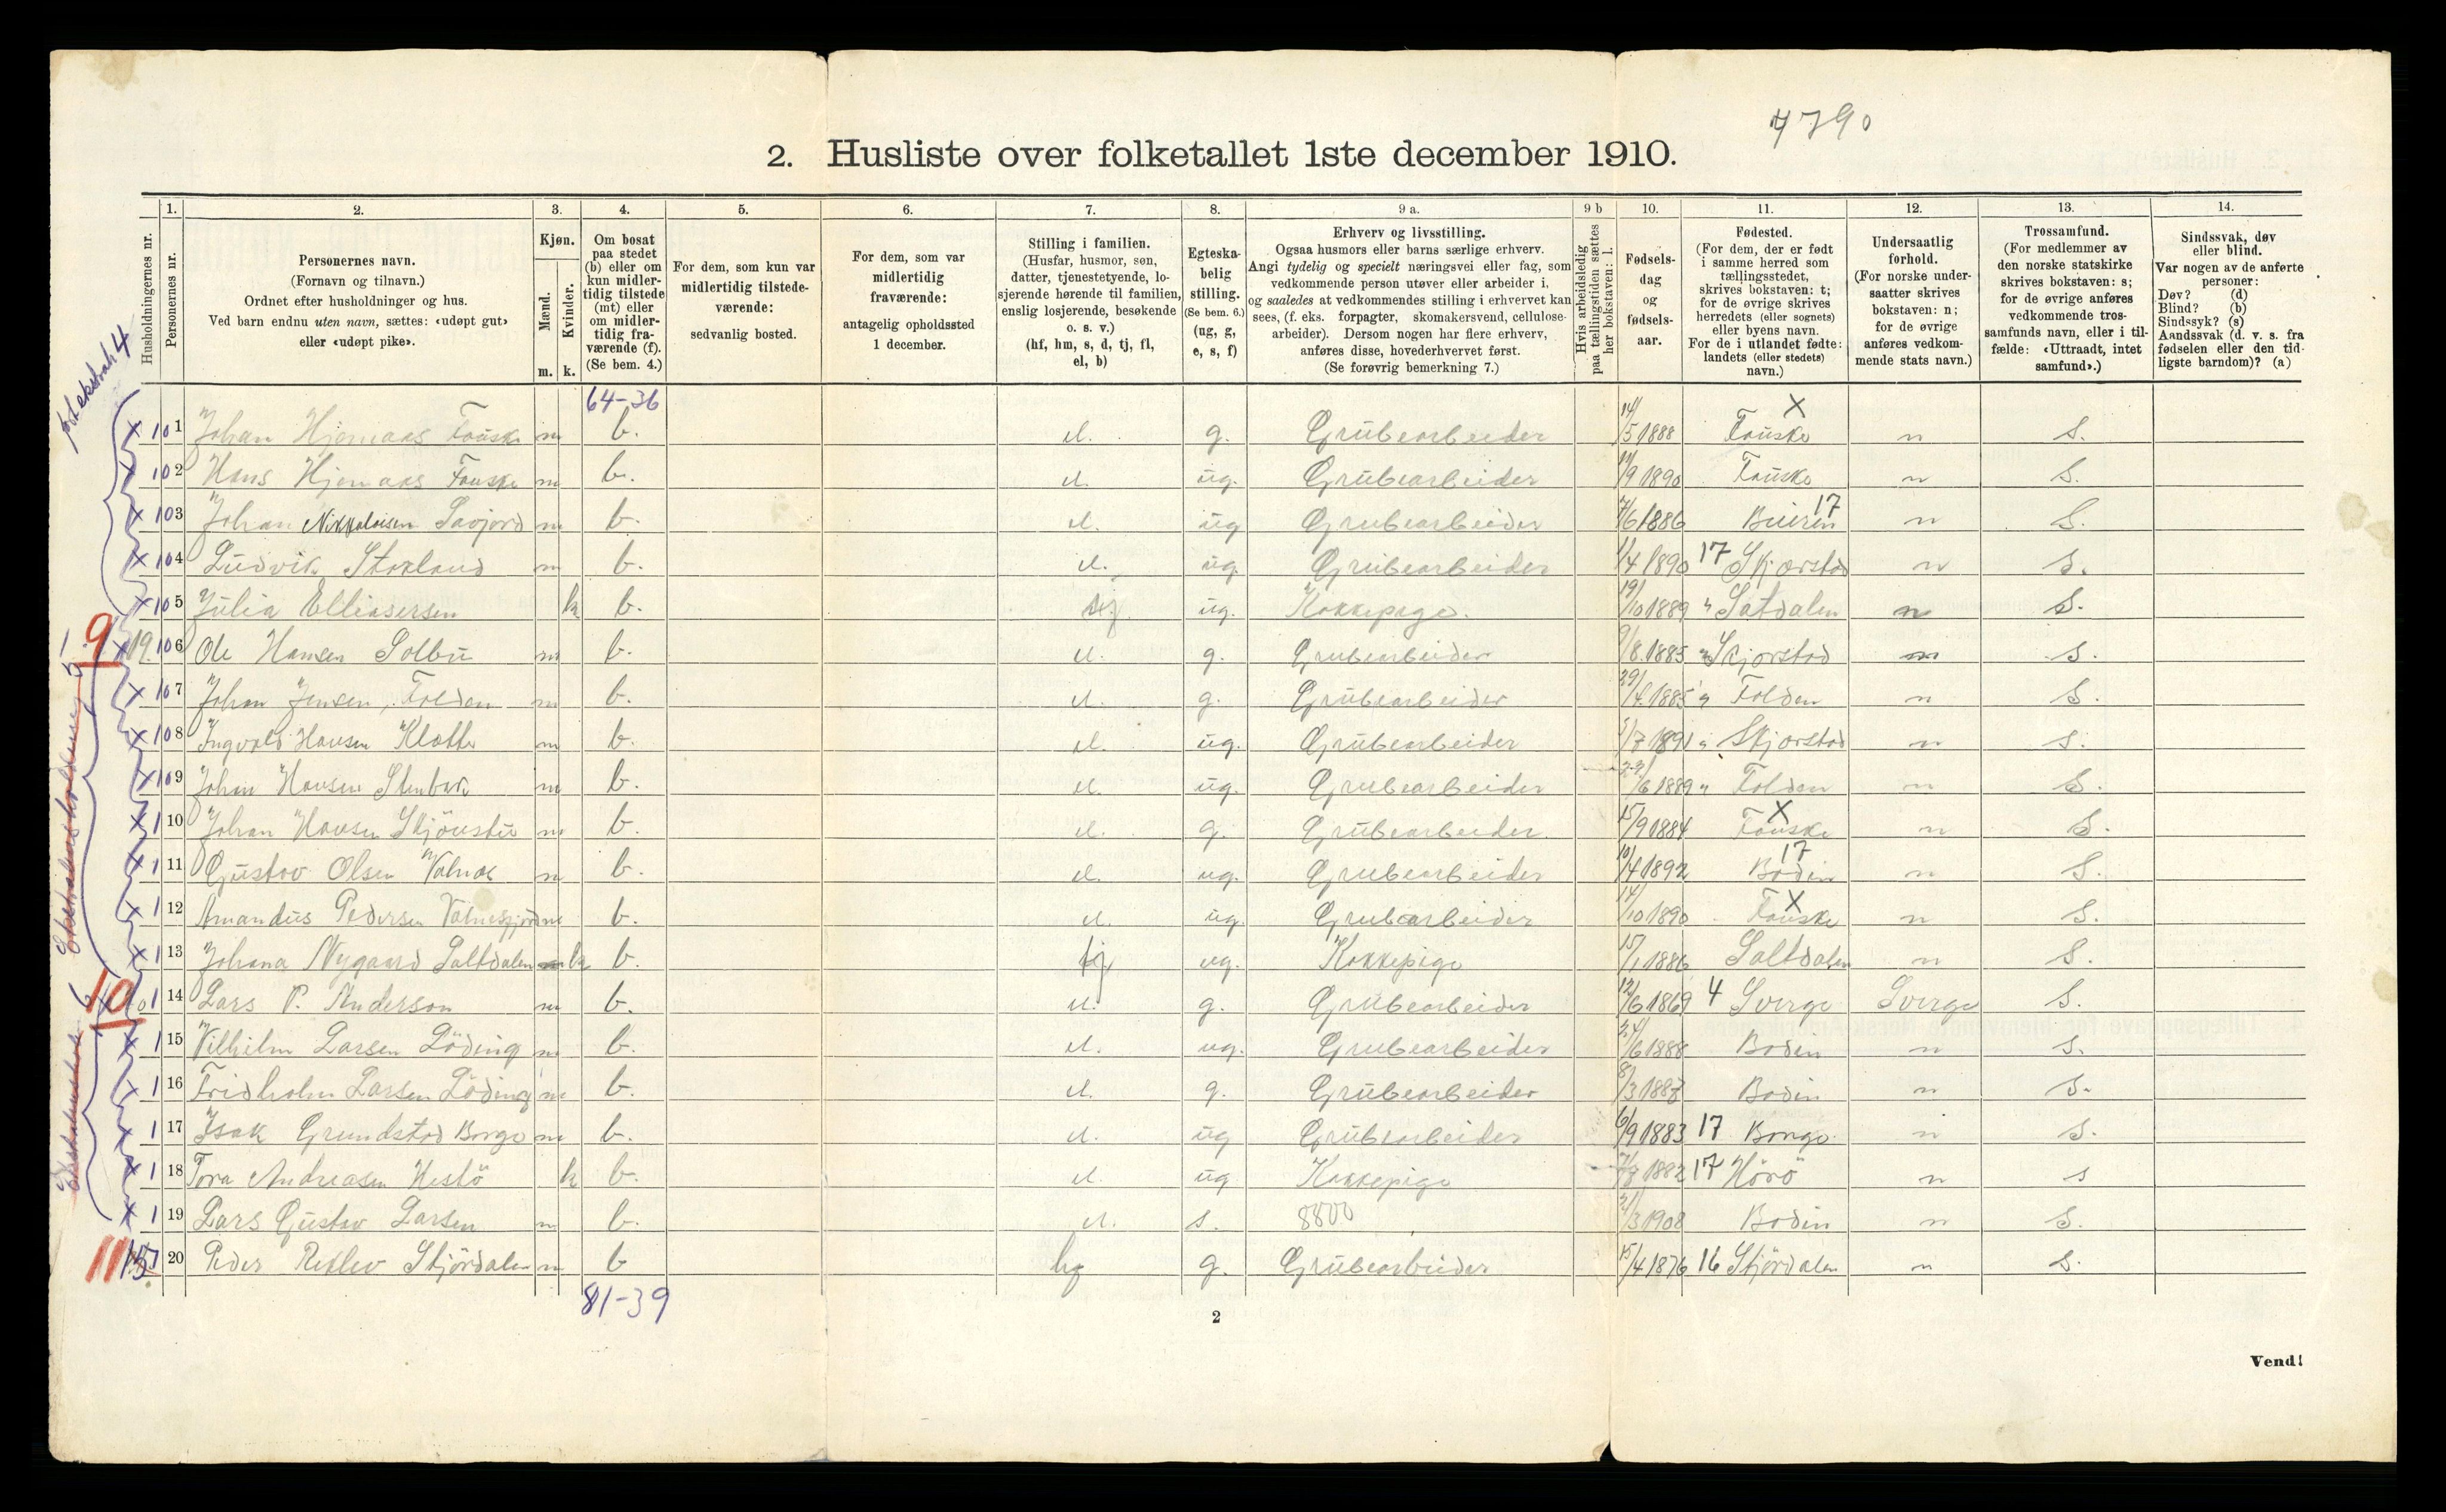 4790
2. Husliste over folketallet 1ste december 1910.
Husholdningernes nr.
1.
Personernes nr.
2.
Personernes navn.
(Fornavn og tilnavn.)
Ordnet efter husholdninger og hus.
Ved barn endnu uten navn, sættes: «udøpt gut»
eller «udøpt pike».
3.
Kjøn.
Mænd.
Kvinder.
m. k.
4.
Om bosat
paa stedet
(b) eller om
kun midler-
tidig tilstede
(mt) eller
om midler-
tidig fra-
værende (f).
(Se bem. 4.)
5.
For dem, som kun var
midlertidig tilstede-
værende:
sedvanlig bosted.
6.
For dem, som var
midlertidig
fraværende:
antagelig opholdssted
1 december.
7.
Stilling i familien.
(Husfar, husmor, søn,
datter, tjenestetyende, lo-
sjerende hørende til familien,
enslig losjerende, besøkende
o. s. v.)
(hf, hm, s, d, tj, fl,
el, b)
8.
Egteska-
belig
stilling.
(Se bem. 6.)
(ug, g,
e, s, f)
9 a.
Erhverv og livsstilling.
Ogsaa husmors eller barns særlige erhverv.
Angi tydelig og specielt næringsvei eller fag, som
vedkommende person utøver eller arbeider i,
og saaledes at vedkommendes stilling i erhvervet kan
sees, (f. eks. forpagter, skomakersvend, cellulose-
arbeider). Dersom nogen har flere erhverv,
anføres disse, hovederhvervet først.
(Se forøvrig bemerkning 7.)
9 b
Hvis arbeidsledig
paa tællingstiden sættes
her bokstaven: l.
10.
Fødsels-
dag
og
fødsels-
aar.
11.
Fødested.
(For dem, der er født
i samme herred som
tællingsstedet,
skrives bokstaven: t;
for de øvrige skrives
herredets (eller sognets)
eller byens navn.
For de i utlandet fødte:
landets (eller stedets)
navn.)
12.
Undersaatlig
forhold.
(For norske under-
saatter skrives
bokstaven: n;
for de øvrige
anføres vedkom-
mende stats navn.)
13.
Trossamfund.
(For medlemmer av
den norske statskirke
skrives bokstaven: s;
for de øvrige anføres
vedkommende tros-
samfunds navn, eller i til-
fælde: «Uttraadt, intet
samfund».)
14.
Sindssvak, døv
eller blind.
Var nogen av de anførte
personer:
Døv? (d)
Blind? (b)
Sindssyk? (s)
Aandssvak (d. v. s. fra
fødselen eller den tid-
ligste barndom)? (a)
64-36
x 101 Johan Hjemaas Fauske m b. el. g. Grubearbeider 14/5 1888 Fauske x n S.
x 102 Hans Hjemaas Fauske m b. el. ug. Grubearbeider /9 1890 Fauske n S.
x 103 Johan Nikkolaisen Savjord m b. el. ug Grubearbeider 7/6 1886 Beieren 17 n S.
x 104 Ludvik Storland m b. el. ug. Grubearbeider /4 1890 17 Skjerstad n S.
x 105 Julia Elliasersen k b. tj. ug. Kokkepige. 19/10 1889 " Saltdalen n S.
9
x 19. 106 Ole Hansen Solbu m b. el. g. Grubearbeider 9/8 1885 " Skjerstad n S.
x 107 Johan Jensen, Folden m b. el. g. Grubearbeider 29/4 1885 " Folden n S.
x 108 Ingvald Hansen Kletth m b. el. ug. Grubearbeider /7 1891 " Skjerstad n S.
x 109 Johan Hansen m b. el. ug. Grubearbeider /6 1889 " Folden n S.
x 110 Johan Hansen Skjönstu m b. el. g. Grubearbeider 15/9 1884 Fauske x n S.
x 111 Gustav Olsen Valnes m b. el. ug. Grubearbeider 10/4 1892 Bodin 17 n S.
x 112 Amandus Pedersen Valnesfjord m b. el. ug. Grubearbeider 14/10 1890 Fauske x n S.
x 113 Johana Nygaard Saltdalen k b. tj ug. Kokkepige 15/1 1886 Saltdalen n S.
10
x 114 Lars P. Anderson m b. el. g. Grubearbeider 12/6 1869 4 Sverge Sverge S.
x 115 Vilhelm Larsen Löding m b. el. ug. Grubearbeider 24/6 1888 Bodin n S.
x 116 Fridholm Larsen Löding m b. el. g. Grubearbeider 8/3 1887 Bodin n S.
x 117 Isak Grundstad Borge m b. el. ug Grubearbeider 6/9 1883 17 Borge n S.
x 118 Tora Andreasen Hestö k b. el. ug Kokkepige 1882 17 Hörö n s
x 119 Lars Gustav Larsen m b. el. s. 8800 21/3 1908 Bodin n S.
11 20 Peder Stjördalen m b hf g. Grubearbeider 15/4 1876 16 Stjördalen n S.
81-39
2
Vend!